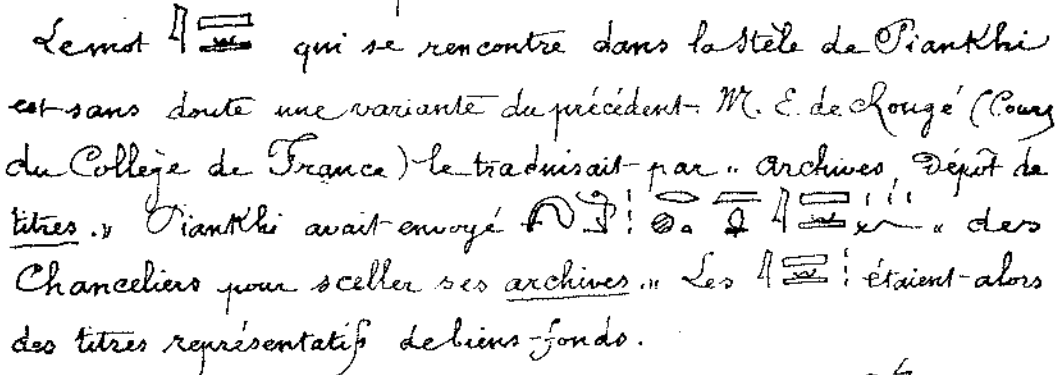 Le mot qui se rencontre dans la Stèle de Piankhi
est sans doute une variante du précédent. M. E. de Rougé (Cours
du Collège de France) le traduisait par „ archives, Dépôt de
titres. „ Piankhi avait envoyé „ des
Chanceliers pour sceller ses archives. „ Les étaient alors
des titres représentatifs de biens-fonds.